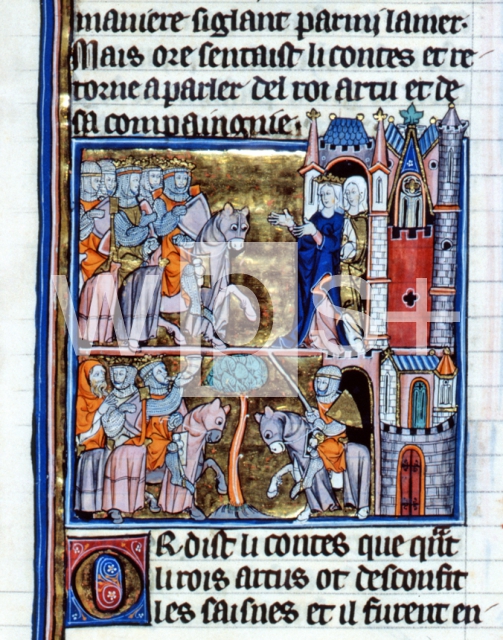 maniere siglant parmi la mer.
Mais ore sentaist li contes et re
torne a parler del roi artu et de
sa compaingnie.
OR dist li contes que qāt
li rois artus ot desconfit
les saisnes et il furent en